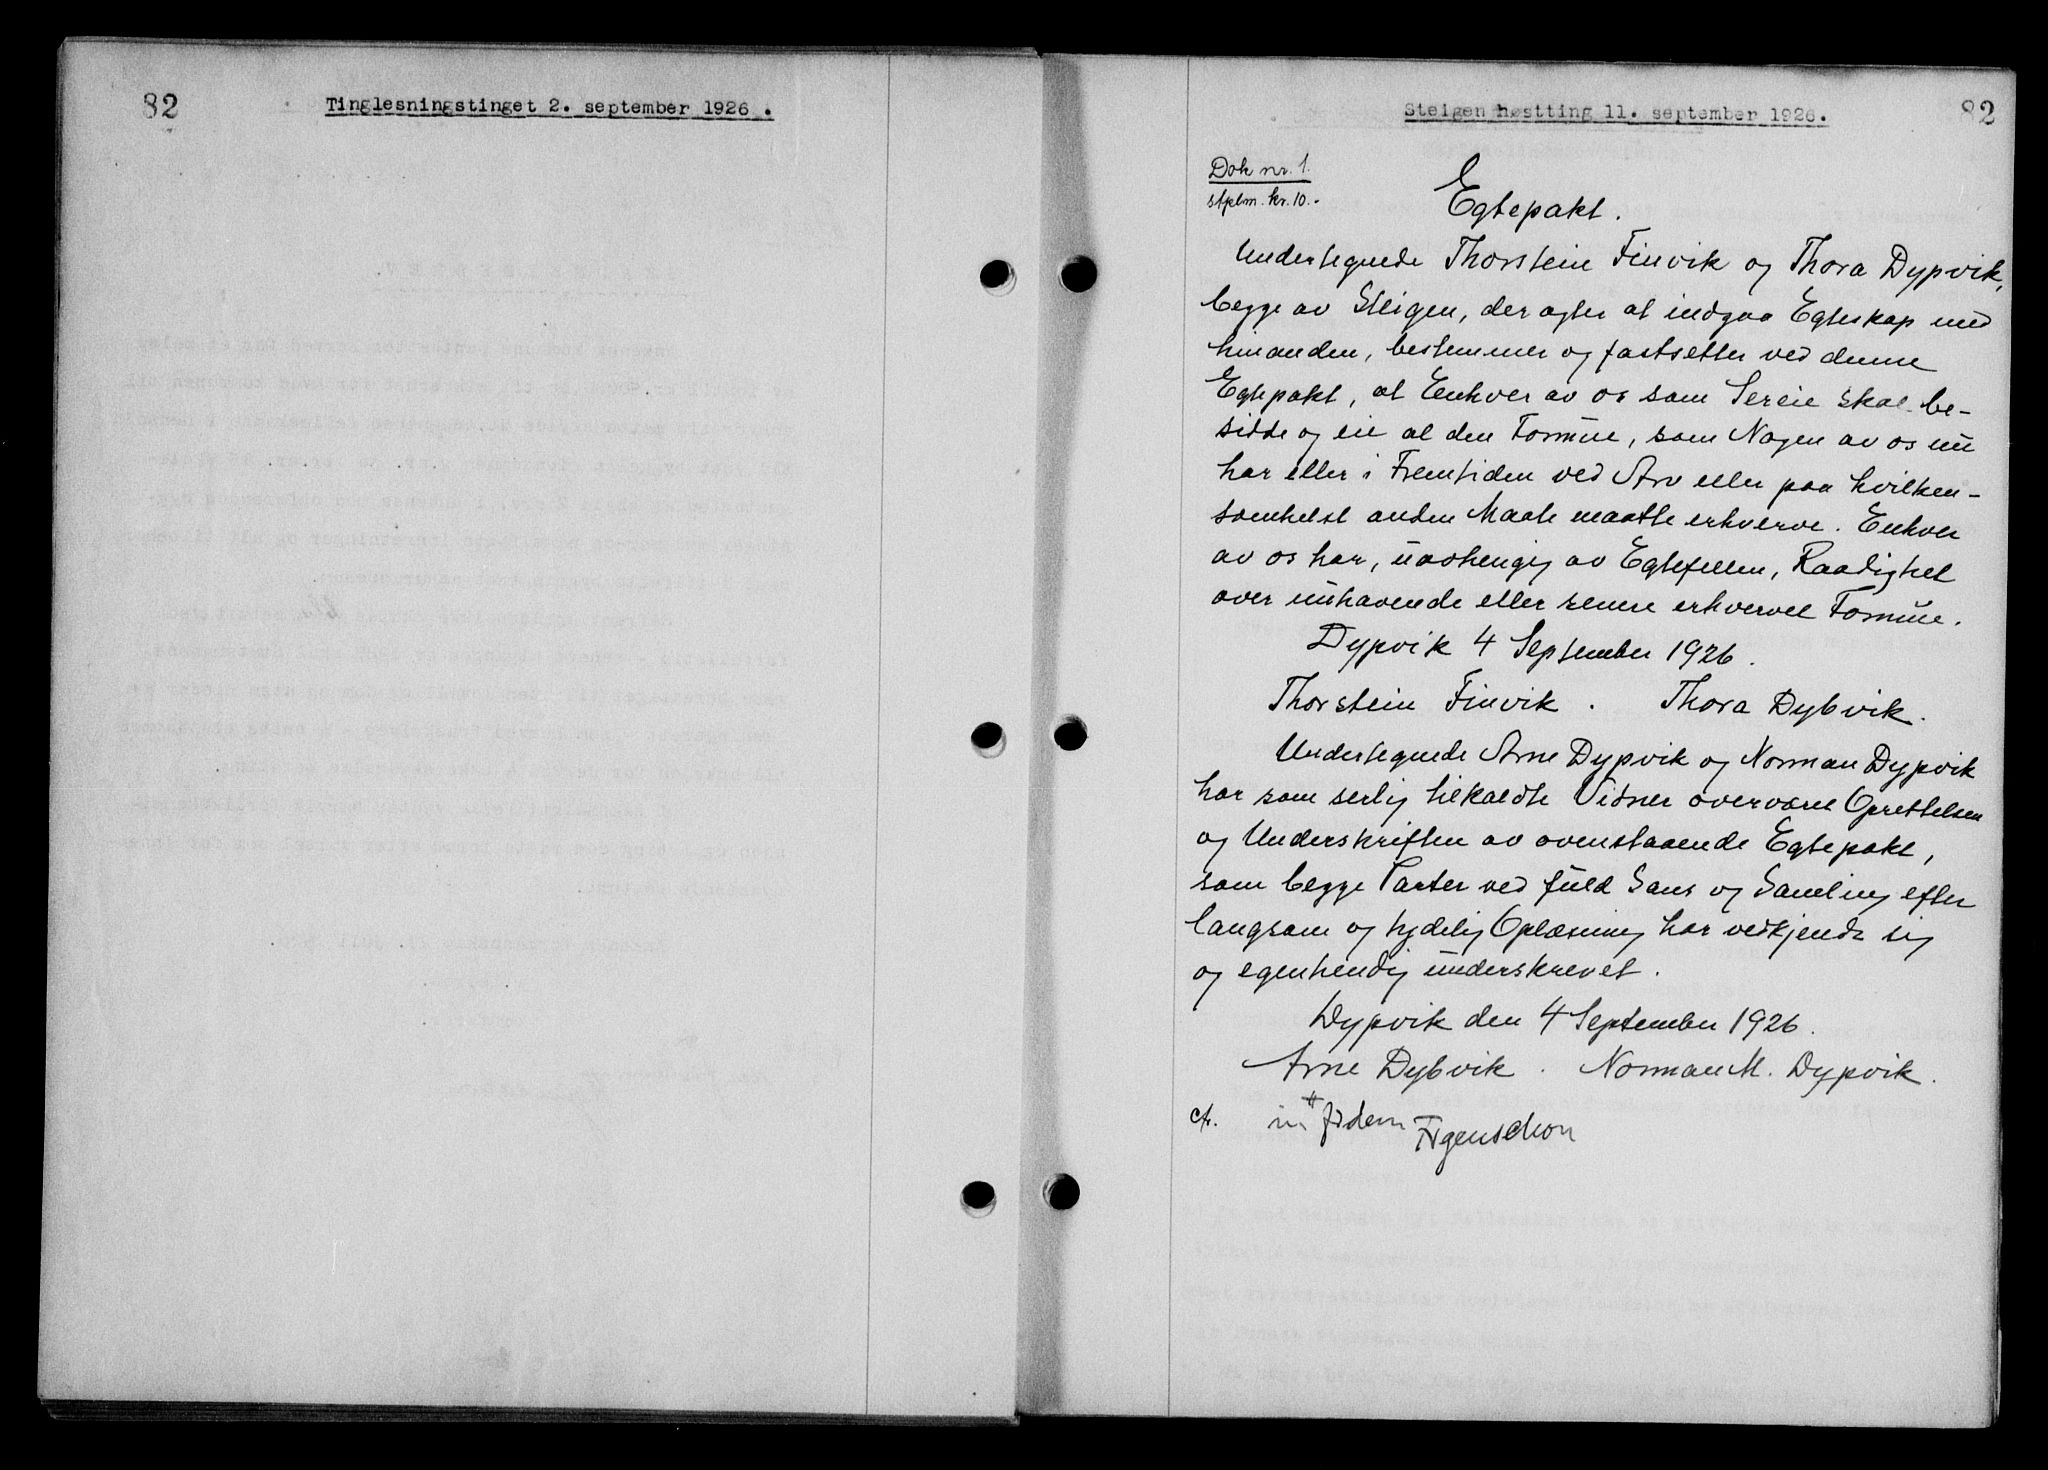 82
Tinglesningstinget 2. september 1926.
Steigen høstting 11. september 1926.
82
Dok nr. 1.
stplm. kr. 10.-
Egtepakt.
Undertegnede Thorstein Finvik og Thora Dypvik,
begge av Steigen, der agter at indgaa Egteskap med
hinanden, bestemmer og fastsetter ved denne
Egtepakt, at Enhver av os som Sereie skal be-
sidde og eie al den Formue, som Nogen av os nu
har eller i Fremtiden ved Arv eller paa hvilken-
somhelst anden Maate maatte erhverve. Enhver
av os har, uavhengig av Egtefellen, Raadighet
over iuhavende eller senere erhvervet Formue.
Dypvik 4 September 1926.
Thorstein Finvik. Thora Dybvik.
Undertegnede Arne Dypvik og Norman Dypvik
har som serlig tilkaldte Vidner overværet Oprettelsen
og Underskriften av ovenstaaende Egtepakt,
som begge Parter ved fuld Sans og Samling efter
langsom og tydelig Oplæsning har vedkjendt sig
og egenhendig underskrevet.
Dypvik den 4 September 1926.
Arne Dybvik. Norman M. Dypvik.
in fidem